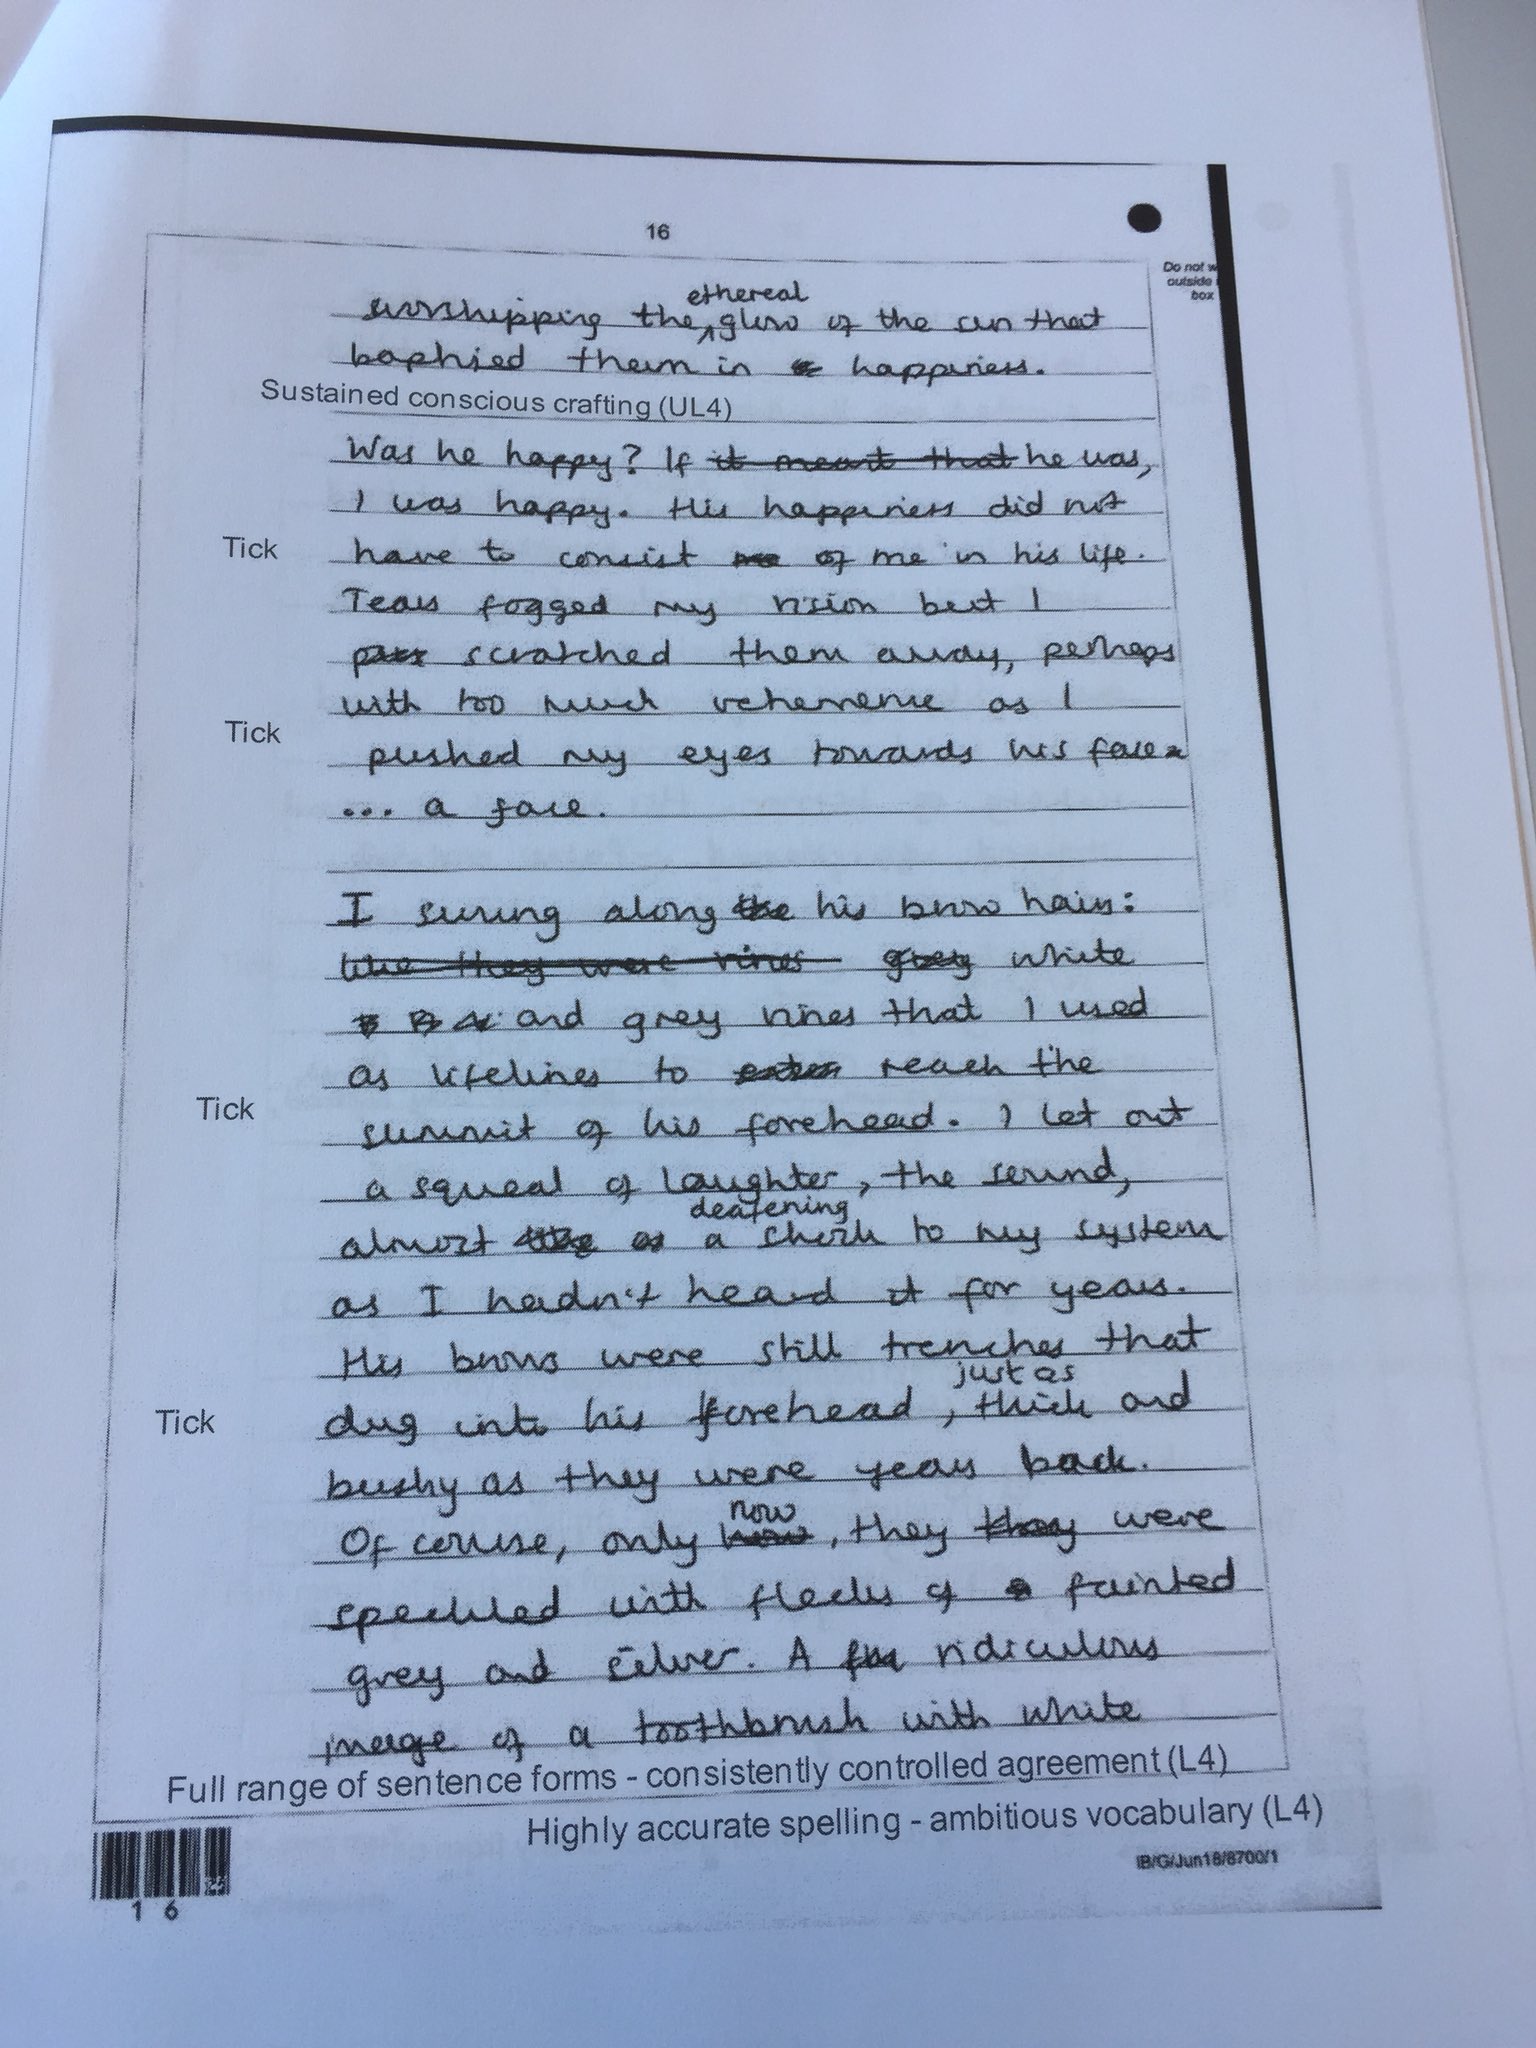 16
Do not w
outside
box
ethereal
worshipping the glow of the sun that
baphied them in happiness.
Sustained conscious crafting (UL4)
Was he happy? If it meant that he was,
I was happy. His happiness did not
Tick
have to consist me of me in his life.
Tears fogged my vision but I
scratched them away, perhaps
with too much vehemence as I
Tick
pushed my eyes towards his face
... a face.
I swung along the his brow hairs:
like they were vines grey white
and grey vines that I used
as lifelines to reach the
Tick
summit of his forehead. I let out
a squeal of laughter, the sound,
deafening
almost as a shock to my system
as I hadn't heard it for years.
His brows were still trenches that
just as
Tick
dug into his forehead, thick and
bushy as they were years back.
now
Of course, only how, they they were
speckled with flecks of a fainted
grey and silver. A ridiculous
image of a toothbrush with white
Full range of sentence forms - consistently controlled agreement (L4)
Highly accurate spelling - ambitious vocabulary (L4)
IB/G/Jun18/8700/1
1 6